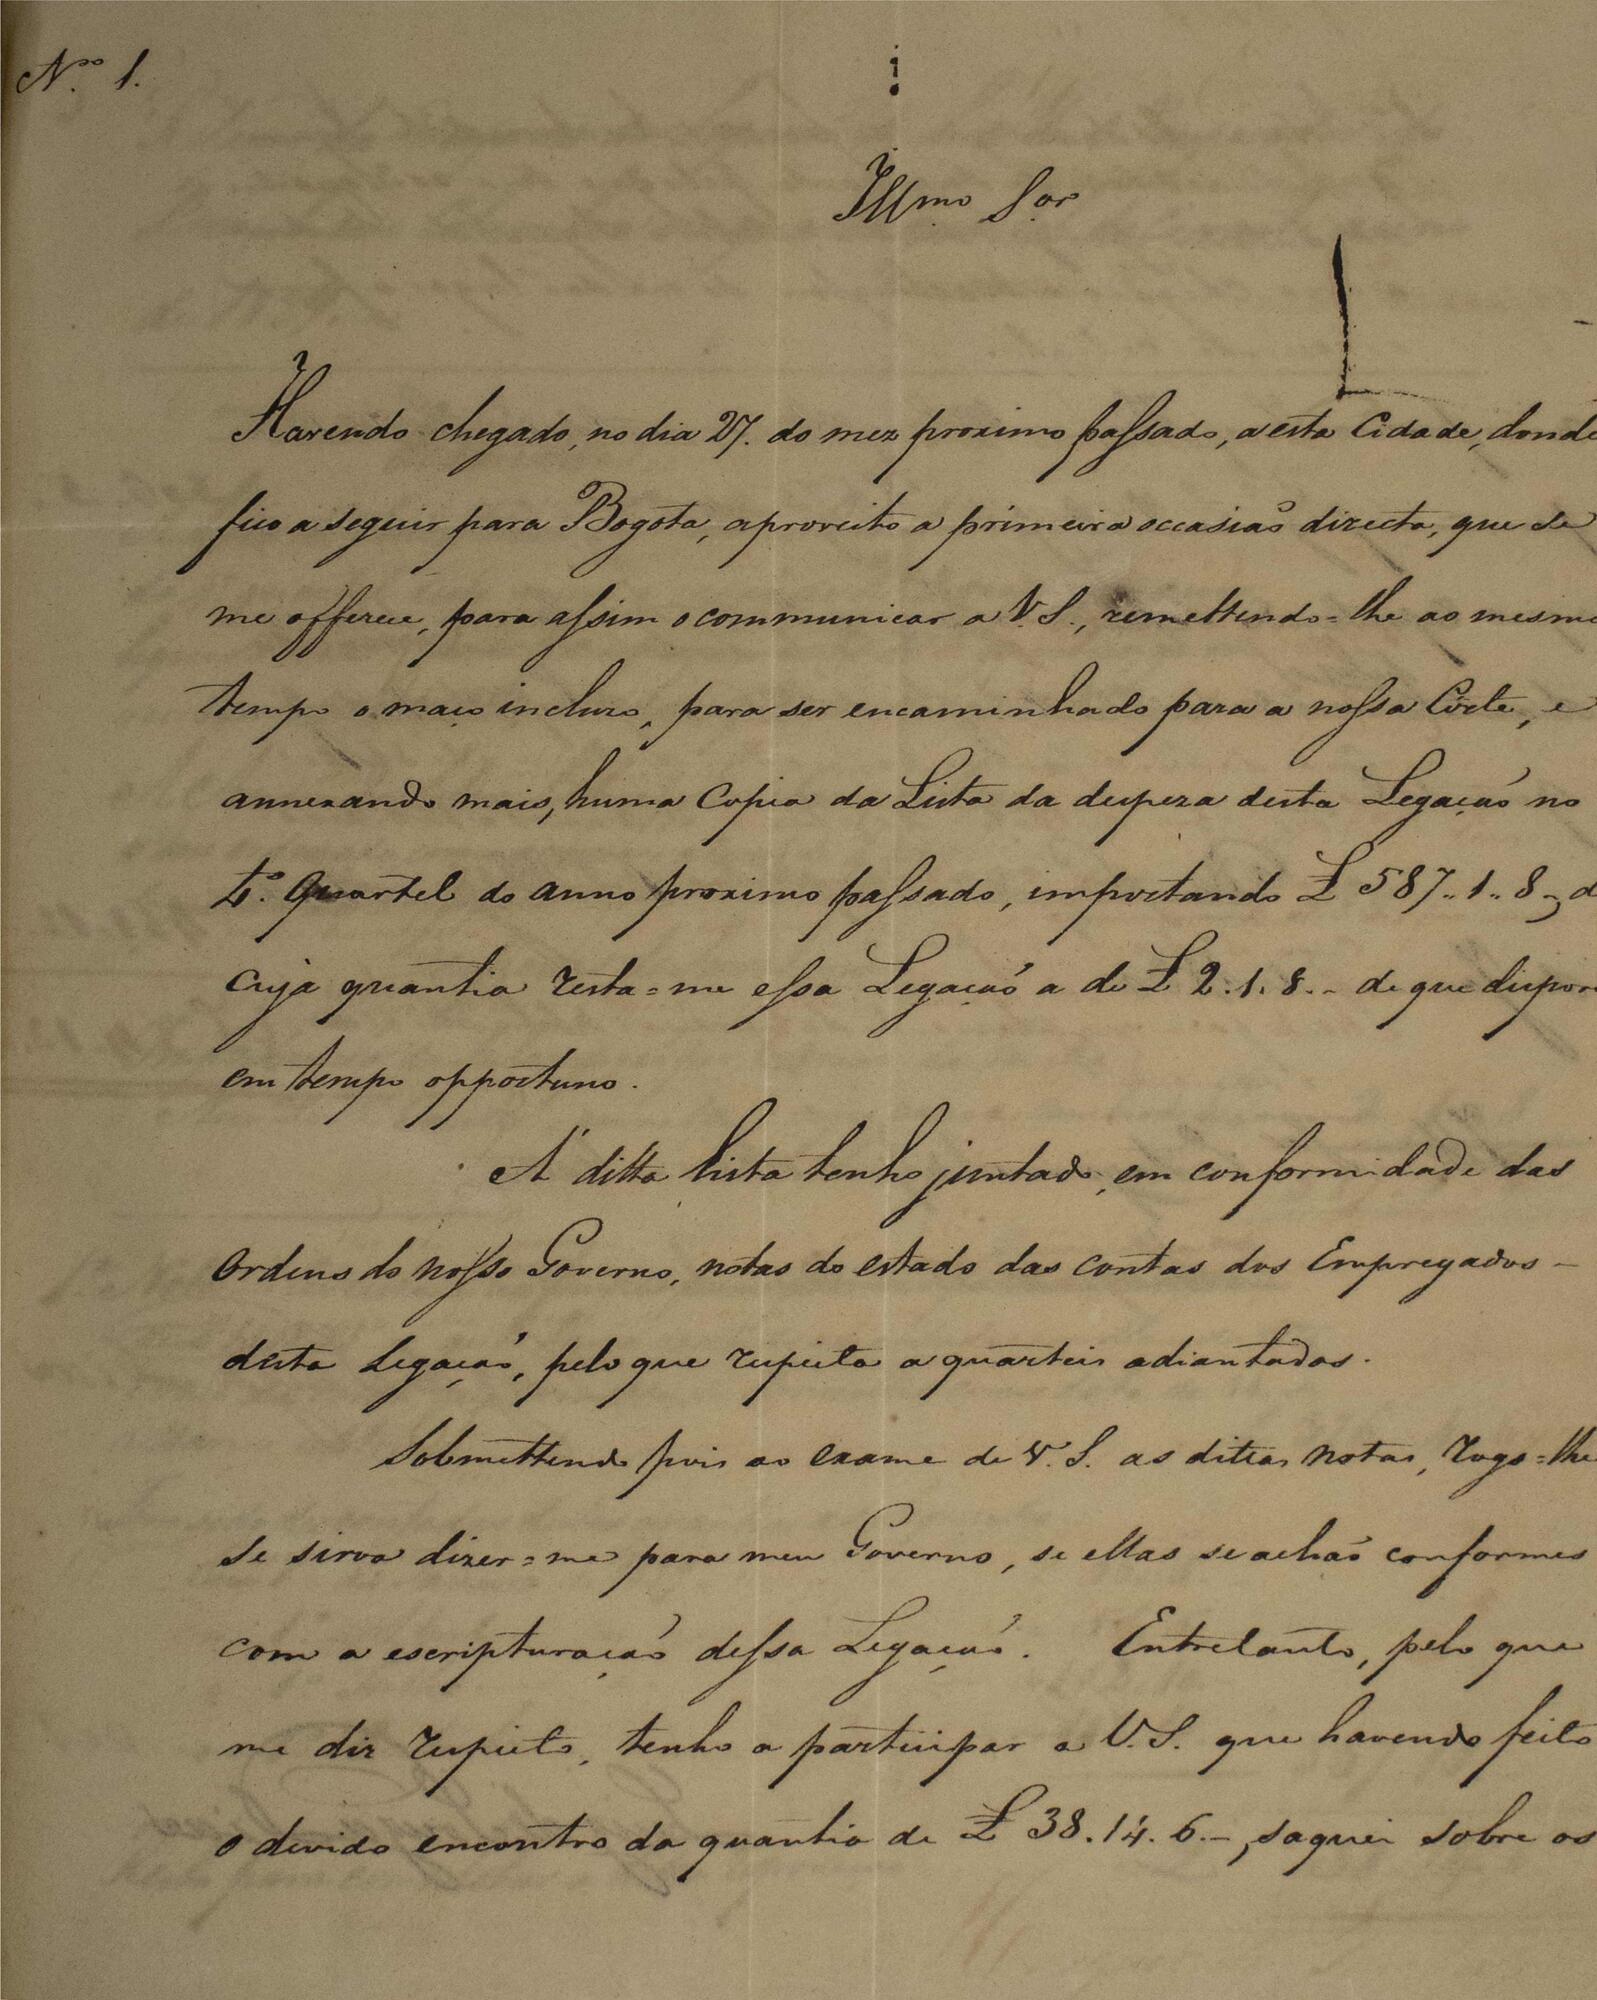 Nº 1.
Illmo Sor
Havendo chegado, no dia 27. do mez proximo passado, a esta Cidade, donde
fico a seguir para Bogota, aproveito a primeira occasiaõ directa, que se
me offerece, para assim o communicar a V. S., remettendo=lhe ao mesmo
tempo o maço incluzo, para ser encaminhado para a nossa Côrte, e
annexando mais, huma Copia da Lista da despeza desta Legaçaõ no
4º. Quartel do anno proximo passado, importando £ 587..1..8, d
cuja quantia resta=me essa Legaçaõ a de £ 2.1.8.- de que dispor
em tempo opportuno.
A' ditta Lista tenho juntado, em conformidade das
Ordens do nosso Governo, notas do estado das contas dos Empregados -
desta Legaçaõ, pelo que respeita a quarteis adiantados.
Sobmettendo pois ao exame de V. S. as dittas notas, rogo=lhe
se sirva dizer=me para meu Governo, se ellas se achaõ conformes
com a escripturaçaõ dessa Legaçaõ. Entretanto, pelo que
me diz respeito, tenho a participar a V. S. que havendo feito
o devido encontro da quantia de £ 38.14.6.-, saquei sobre os